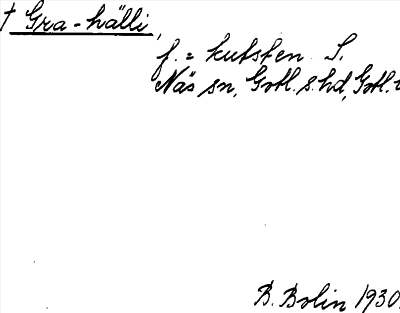 † Gra-hälli,
f. = kutsten. S.
Näs sn, Gotl. s. hd, Gotl.
B. Bolin 1930.